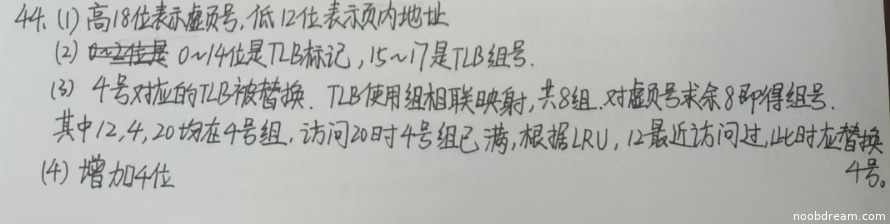 44. (1) 高18位表示虚页号, 低12位表示页内地址
(2) 0~14位是TLB标记, 15~17是TLB组号.
(3) 4号对应的TLB被替换. TLB使用组相联映射, 共8组. 对虚页号求余8即得组号.
其中12, 4, 20均在4号组, 访问20时4号组已满, 根据LRU, 12最近访问过, 此时应替换
4号。
(4) 增加4位
noobdream.com